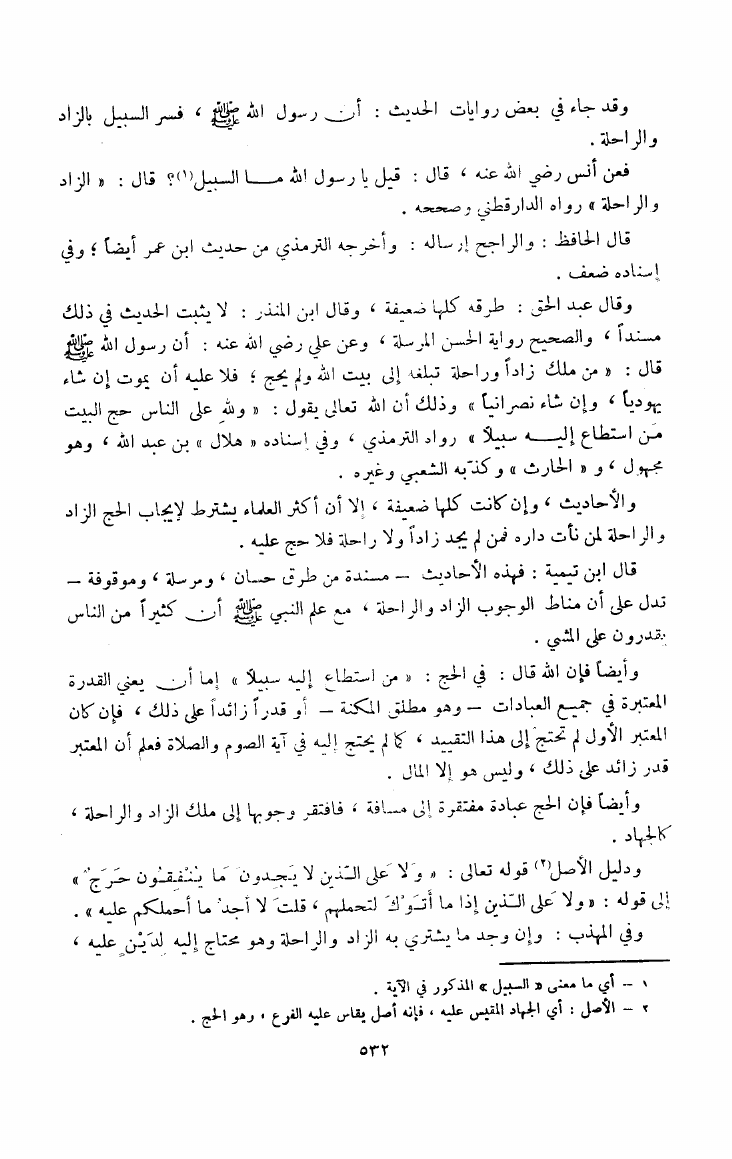 وقد جاء في بعض روايات الحديث : أن رسول الله ﷺ ، فسر السبيل بالزاد
والراحلة .
فعن أنس رضي الله عنه ، قال : قيل يا رسول الله مـا السبيل(١)؟ قال : « الزاد
والراحلة » رواه الدارقطني وصححه .
قال الحافظ : والراجح إرساله : وأخرجه الترمذي من حديث ابن عمر أيضاً ؛ وفي
إسناده ضعف .
وقال عبد الحق : طرقه كلها ضعيفة ، وقال ابن المنذر : لا يثبت الحديث في ذلك
مسنداً ، والصحيح رواية الحسن المرسلة ، وعن علي رضي الله عنه : أن رسول الله ﷺ
قال : « من ملك زاداً وراحلة تبلغه إلى بيت الله ولم يحج ؛ فلا عليه أن يموت إن شاء
يهودياً ، وإن شاء نصرانياً » وذلك أن الله تعالى يقول : « ولله على الناس حج البيت
مَن استطاع إليـه سبيلاً » رواد الترمذي ، وفي إسناده « هلال » بن عبد الله ، وهو
مجهول ، و « الحارث » وكذّبه الشعبي وغيره .
والأحاديث ، وإن كانت كلها ضعيفة ، إلا أن أكثر العلماء يشترط لإيجاب الحج الزاد
والراحلة لمن نأت داره فمن لم يجد زاداً ولا راحلة فلا حج عليه .
قال ابن تيمية : فهذه الأحاديث – مسندة من طرق حسان ، ومرسلة ، وموقوفة –
تدل على أن مناط الوجوب الزاد والراحلة ، مع علم النبي ﷺ أن كثيراً من الناس
يقدرون على المشي .
وأيضاً فإن الله قال : في الحج : « من استطاع إليه سبيلاً » إما أن يعني القدرة
المعتبرة في جميع العبادات – وهو مطلق المكنة – أو قدراً زائداً على ذلك ، فإن كان
المعتبر الأول لم تحتج إلى هذا التقييد ، كما لم يحتج إليه في آية الصوم والصلاة فعلم أن المعتبر
قدر زائد على ذلك ، وليس هو إلا المال .
وأيضاً فإن الحج عبادة مفتقرة إلى مسافة ، فافتقر وجوبها إلى ملك الزاد والراحلة ،
كالجهاد .
ودليل الأصل(٢) قوله تعالى : « وَلا عَلى الَّذين لا يَجِدون مَا يُنْفِقُون حَرَجٌ »
إلى قوله : « ولا عَلى الَّذين إذا ما أتَوْكَ لتحملهم ، قلتَ لا أجدُ ما أحملكم عليه » .
وفي المهذب : وإن وجد ما يشتري به الزاد والراحلة وهو محتاج إليه لِدَيْنٍ عليه ،
١ – أي ما معنى « السبيل » المذكور في الآية .
٢ – الأصل : أي الجهاد المقيس عليه ، فإنه أصل يقاس عليه الفرع ، وهو الحج .
٥٣٢